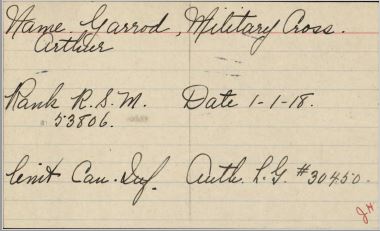 Name Garrod, Military Cross.
Arthur
Rank R.S.M. Date 1-1-18.
53806.
Unit Can. Inf. Auth. L.G. #30450.
JH